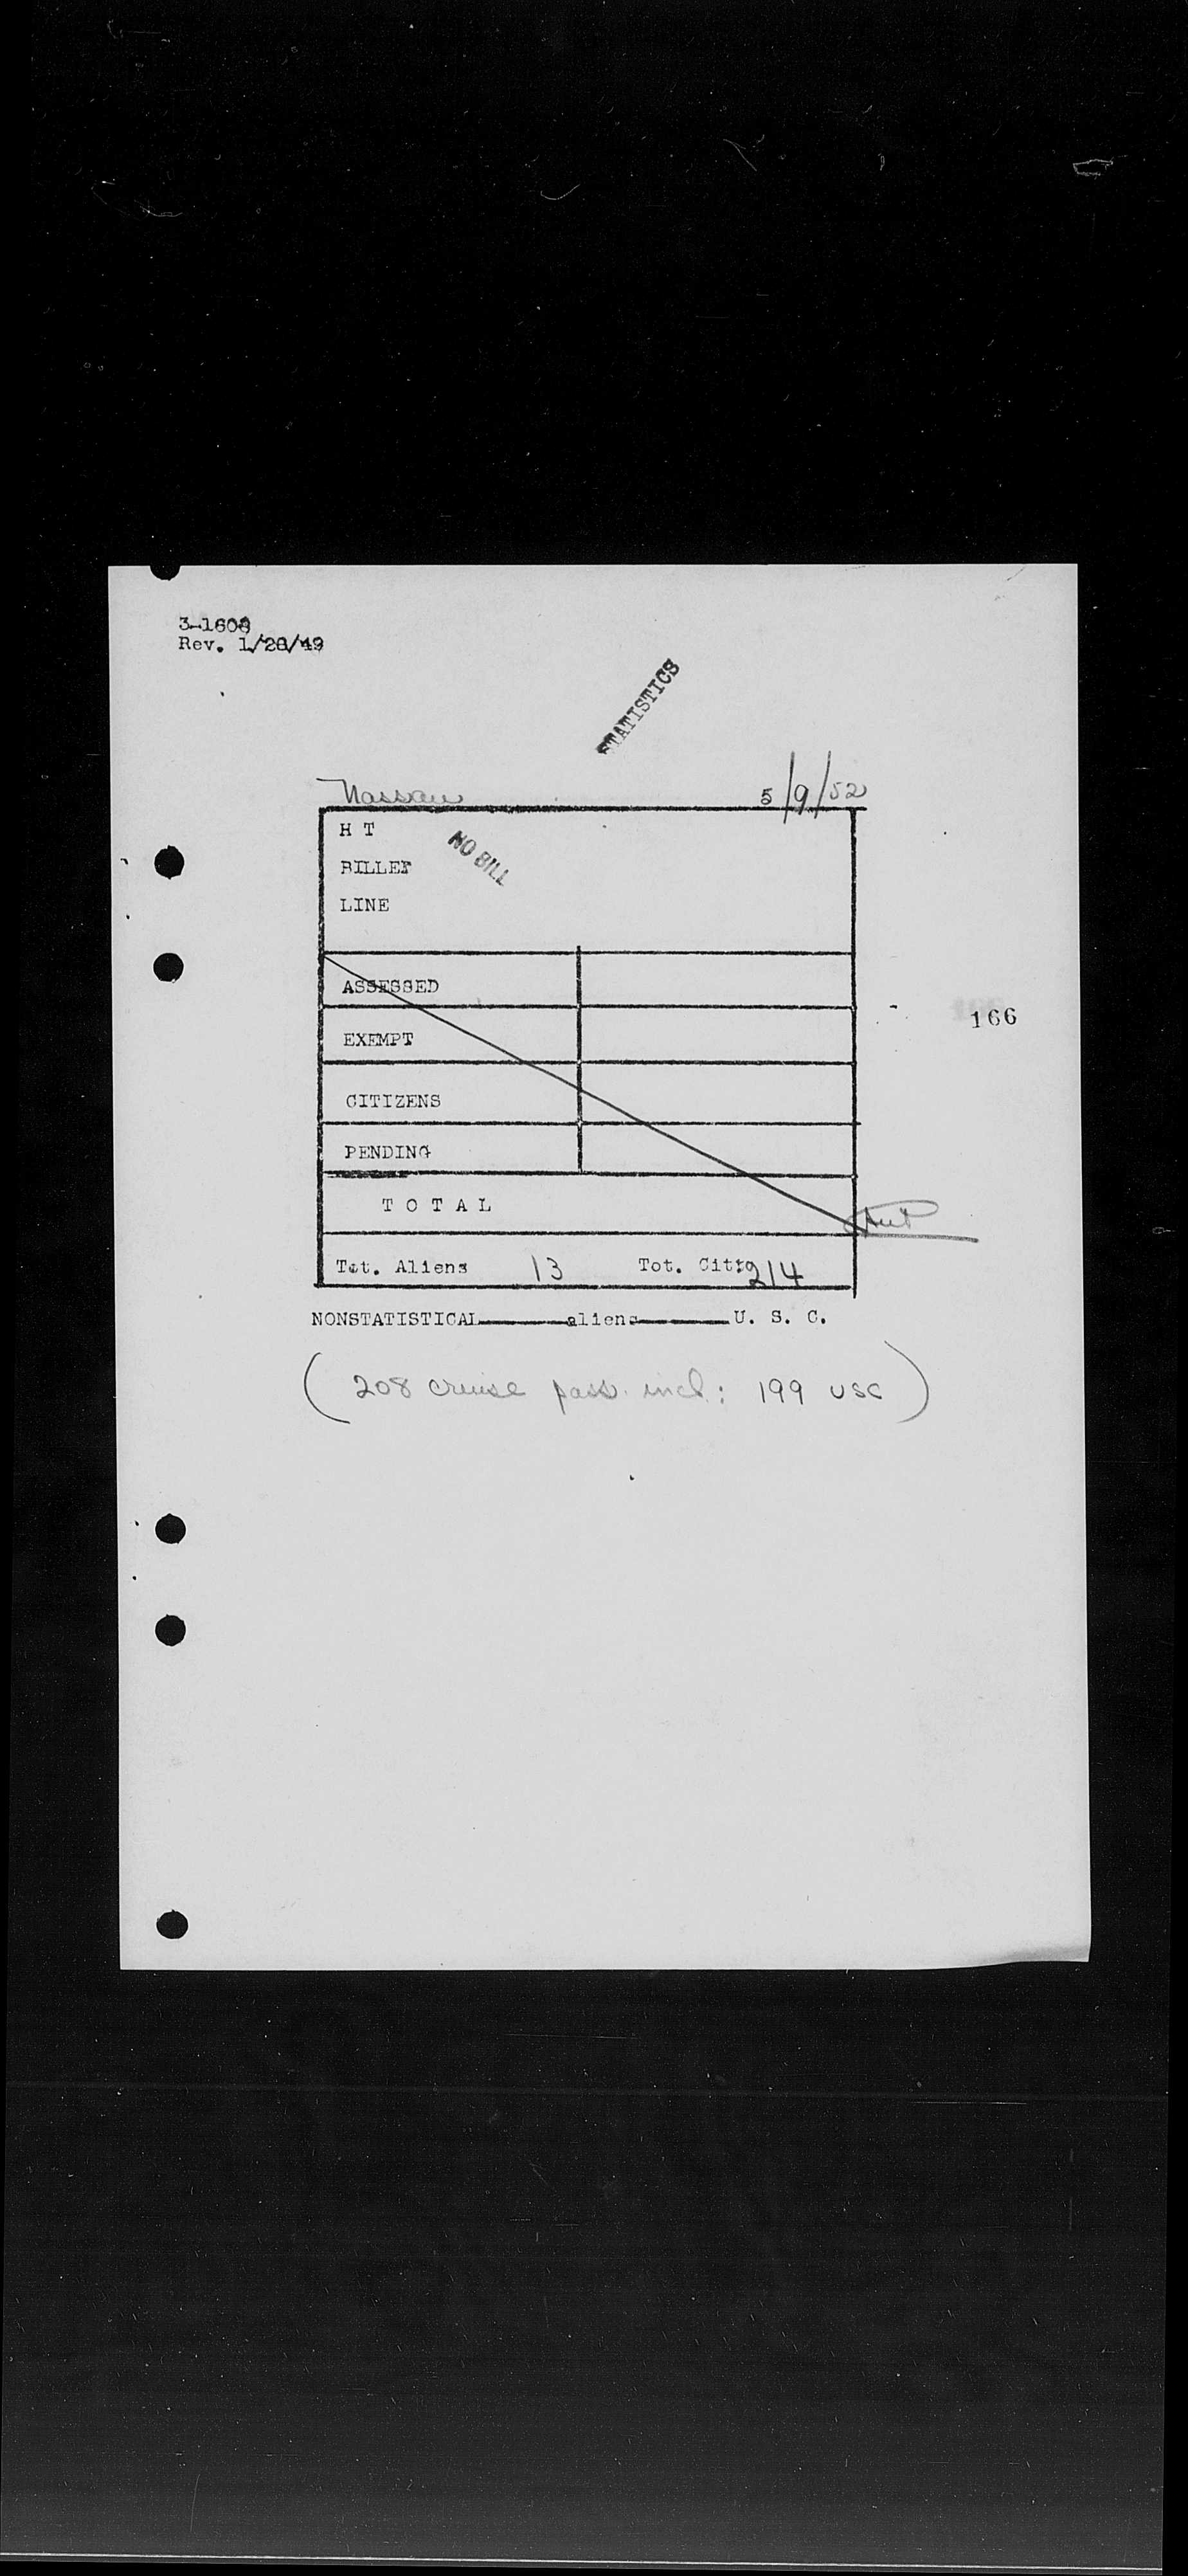 3-1608
Rev. 1/28/49
STATISTICS
Nassau 5/9/52
H T
NO BILL
BILLET
LINE
ASSESSED
166
EXEMPT
CITIZENS
PENDING
T O T A L
Tot. Aliens 13 Tot. Citz 214
NONSTATISTICAL aliens U. S. C.
(208 cruise pass. incl: 199 USC)